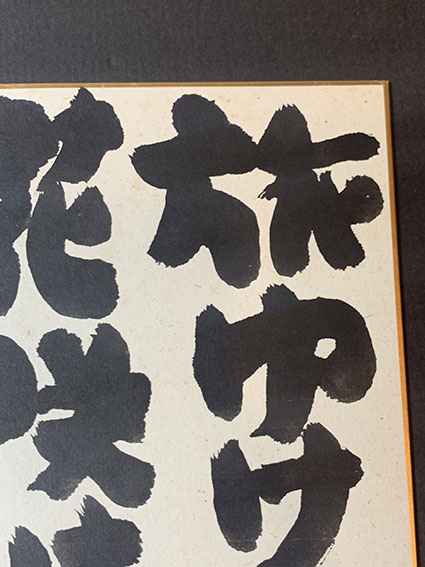 旅ゆけ
花咲